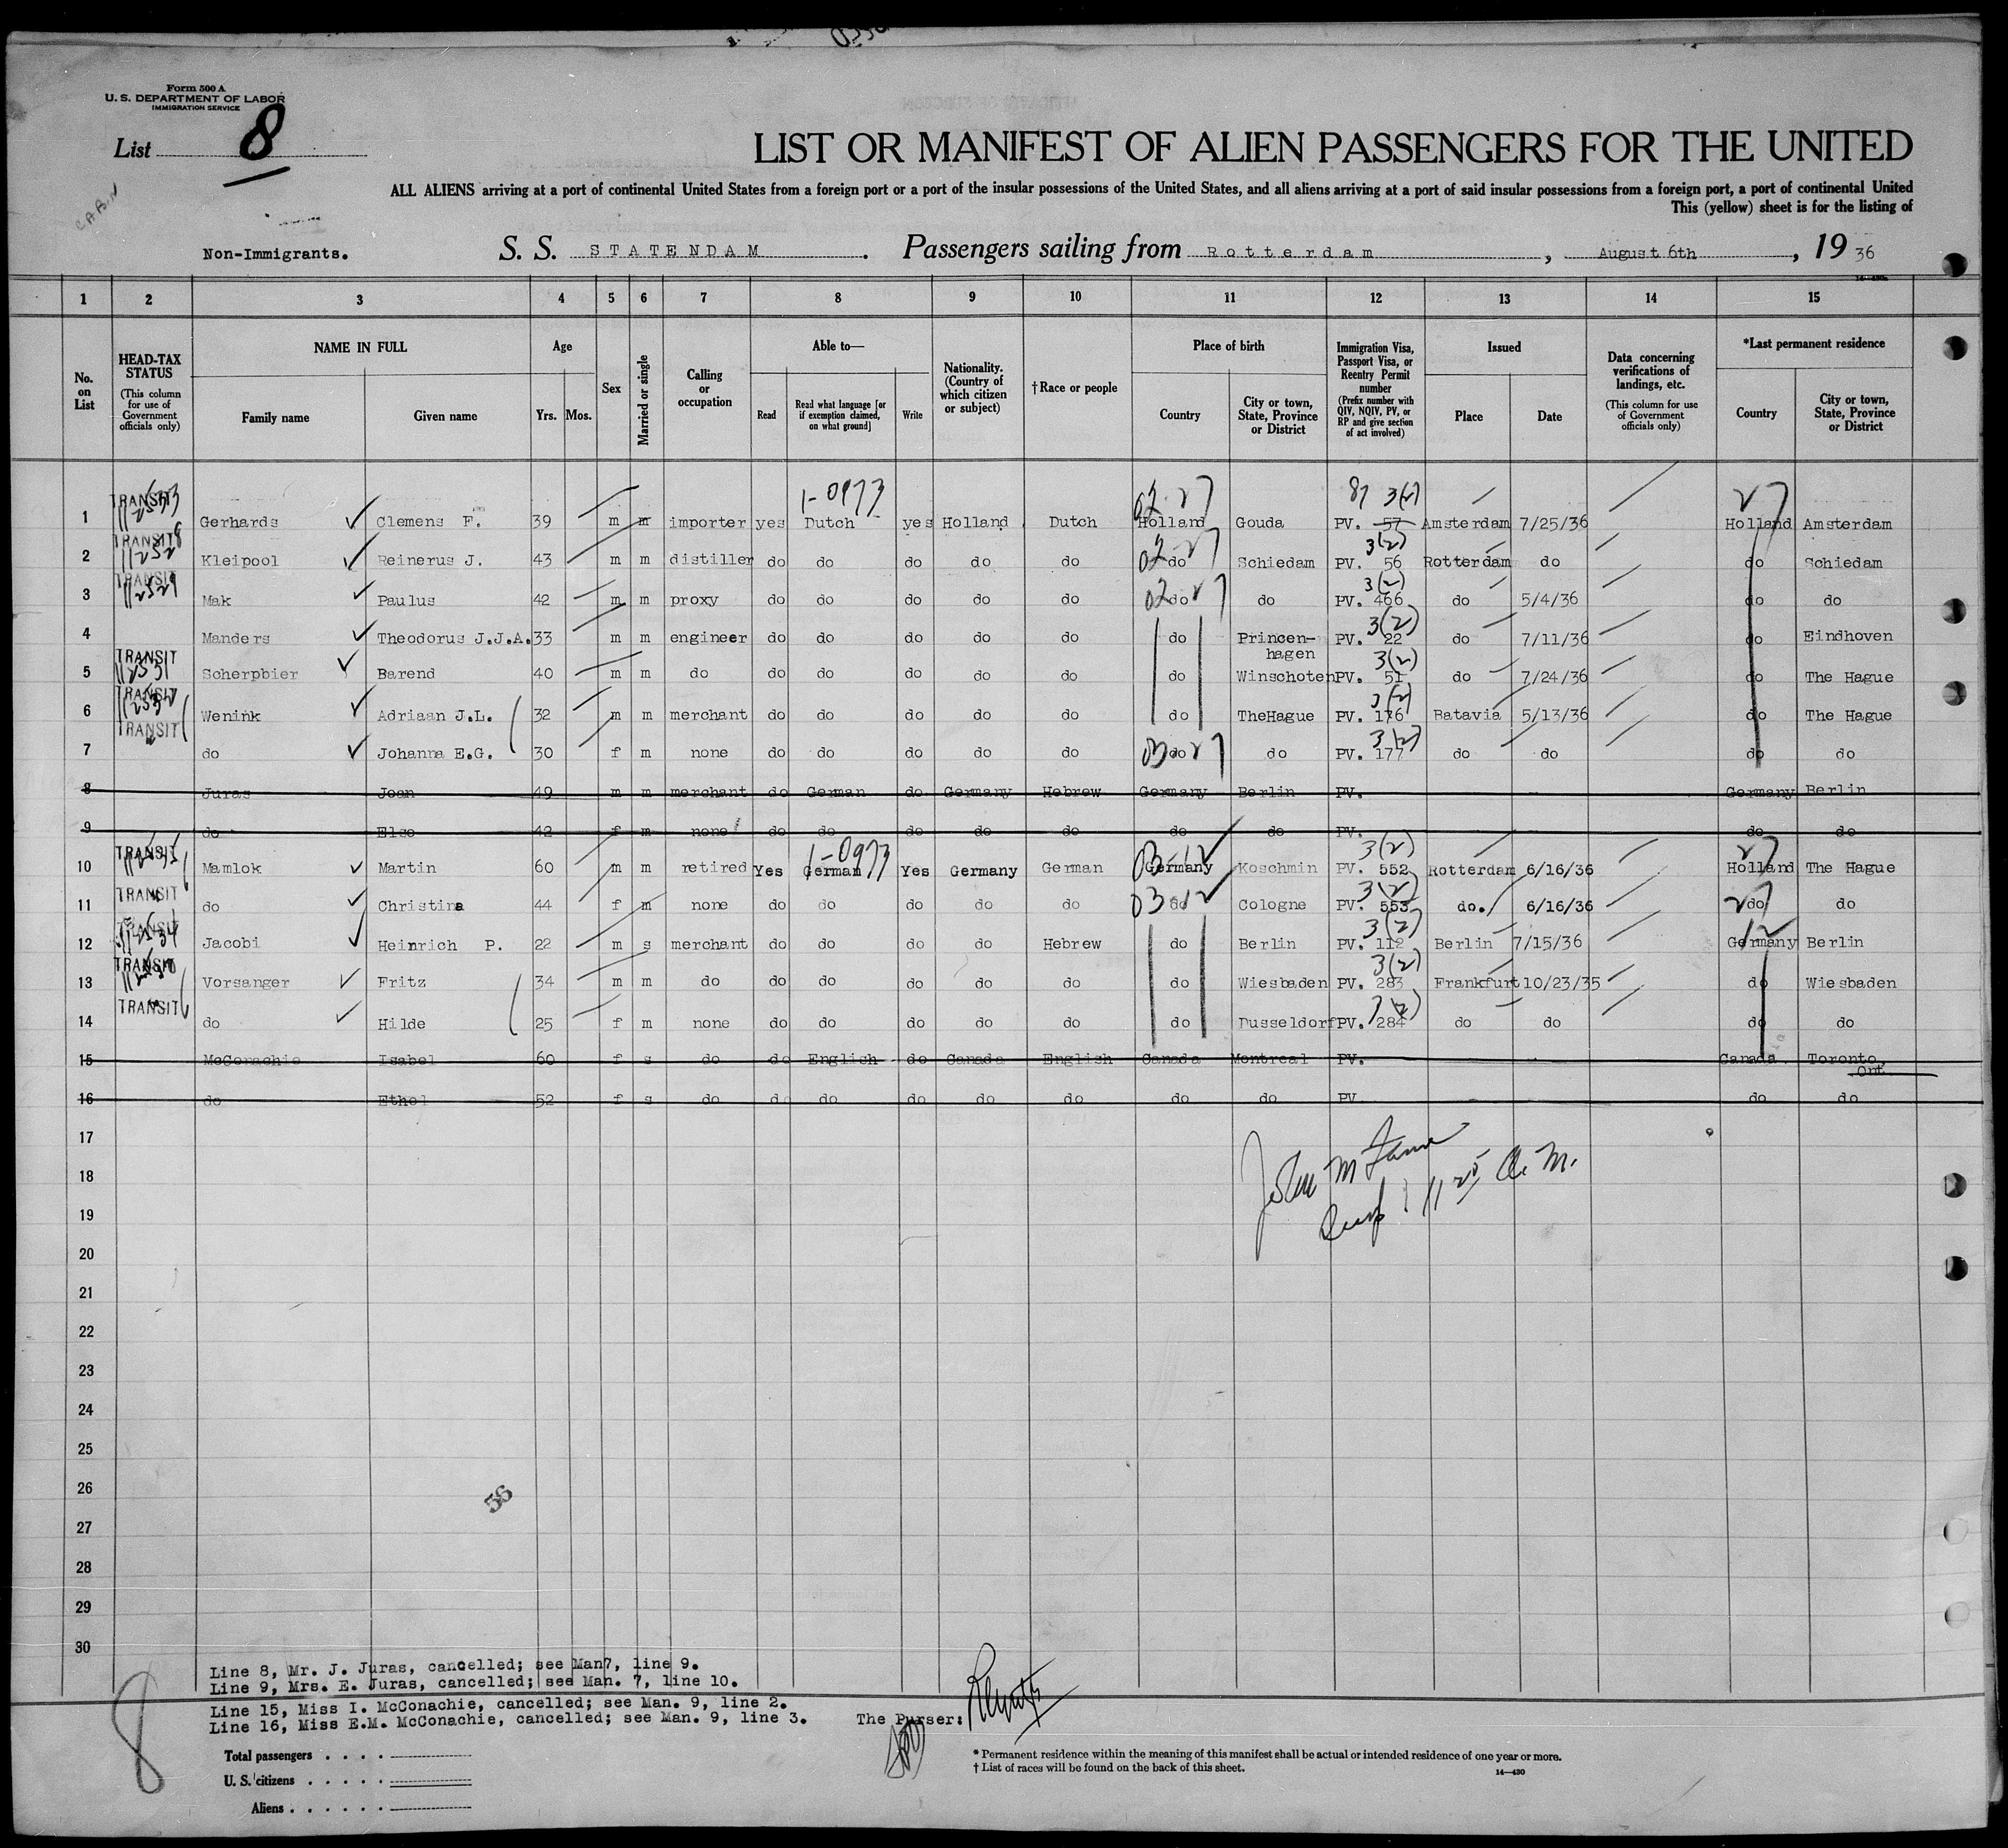 Form 500 A
U. S. DEPARTMENT OF LABOR
IMMIGRATION SERVICE
List 8
CABIN
LIST OR MANIFEST OF ALIEN PASSENGERS FOR THE UNITED
ALL ALIENS arriving at a port of continental United States from a foreign port or a port of the insular possessions of the United States, and all aliens arriving at a port of said insular possessions from a foreign port, a port of continental United
This (yellow) sheet is for the listing of
Non-Immigrants. S. S. STATENDAM. Passengers sailing from Rotterdam, August 6th, 1936
1 2 3 4 5 6 7 8 9 10 11 12 13 14 15
No. on List
HEAD-TAX STATUS (This column for use of Government officials only)
NAME IN FULL Family name Given name
Age Yrs. Mos.
Sex
Married or single
Calling or occupation
Able to— Read Read what language [or if exemption claimed, on what ground] Write
Nationality. (Country of which citizen or subject)
†Race or people
Place of birth Country City or town, State, Province or District
Immigration Visa, Passport Visa, or Reentry Permit number (Prefix number with QIV, NQIV, PV, or RP and give section of act involved)
Issued Place Date
Data concerning verifications of landings, etc. (This column for use of Government officials only)
*Last permanent residence Country City or town, State, Province or District
TRANSIT 1-0973 02 27 87 3(2) 27
1 Gerhards Clemens F. 39 m m importer yes Dutch yes Holland Dutch Holland Gouda PV. 57 Amsterdam 7/25/36 Holland Amsterdam
TRANSIT 02-27 3(2)
2 Kleipool Reinerus J. 43 m m distiller do do do do do do Schiedam PV. 56 Rotterdam do do Schiedam
TRANSIT 112529 02 27 3(2)
3 Mak Paulus 42 m m proxy do do do do do do do PV. 466 do 5/4/36 do do
3(2)
4 Manders Theodorus J.J.A. 33 m m engineer do do do do do do Princen-hagen PV. 22 do 7/11/36 do Eindhoven
TRANSIT 112531 3(2)
5 Scherpbier Barend 40 m m do do do do do do do Winschoten PV. 51 do 7/24/36 do The Hague
TRANSIT 112532 3(2)
6 Wenink Adriaan J.L. 32 m m merchant do do do do do do TheHague PV. 176 Batavia 5/13/36 do The Hague
TRANSIT 03 27 3(2)
7 do Johanna E.G. 30 f m none do do do do do do do PV. 177 do do do do
8 Juras Jean 49 m m merchant do German do Germany Hebrew Germany Berlin PV. Germany Berlin
9 do Else 42 f m none do do do do do do do PV. do do
TRANSIT 1-0973 03-12 3(2) 27
10 Mamlok Martin 60 m m retired Yes German Yes Germany German Germany Koschmin PV. 552 Rotterdam 6/16/36 Holland The Hague
TRANSIT 03 12 3(2) 27
11 do Christina 44 f m none do do do do do do Cologne PV. 553 do. 6/16/36 do do
TRANSIT 3(2) 12
12 Jacobi Heinrich P. 22 m s merchant do do do do Hebrew do Berlin PV. 112 Berlin 7/15/36 Germany Berlin
TRANSIT 3(2)
13 Vorsanger Fritz 34 m m do do do do do do do Wiesbaden PV. 283 Frankfurt 10/23/35 do Wiesbaden
TRANSIT
14 do Hilde 25 f m none do do do do do do Dusseldorf PV. 284 do do do do
15 McConachie Isabel 60 f s do do English do Canada English Canada Montreal PV. Canada Toronto, Ont
16 do Ethel 52 f s do do do do do do do do PV. do do
17
18
19
20
21
22
23
24
25
26
27
28
29
30
11 25 A. M.
56
Line 8, Mr. J. Juras, cancelled; see Man7, line 9.
Line 9, Mrs. E. Juras, cancelled; see Man. 7, line 10.
Line 15, Miss I. McConachie, cancelled; see Man. 9, line 2.
Line 16, Miss E.M. McConachie, cancelled; see Man. 9, line 3. The Purser:
8
Total passengers . . . .
U. S. citizens . . . . .
Aliens . . . . . .
* Permanent residence within the meaning of this manifest shall be actual or intended residence of one year or more.
† List of races will be found on the back of this sheet.
14—430